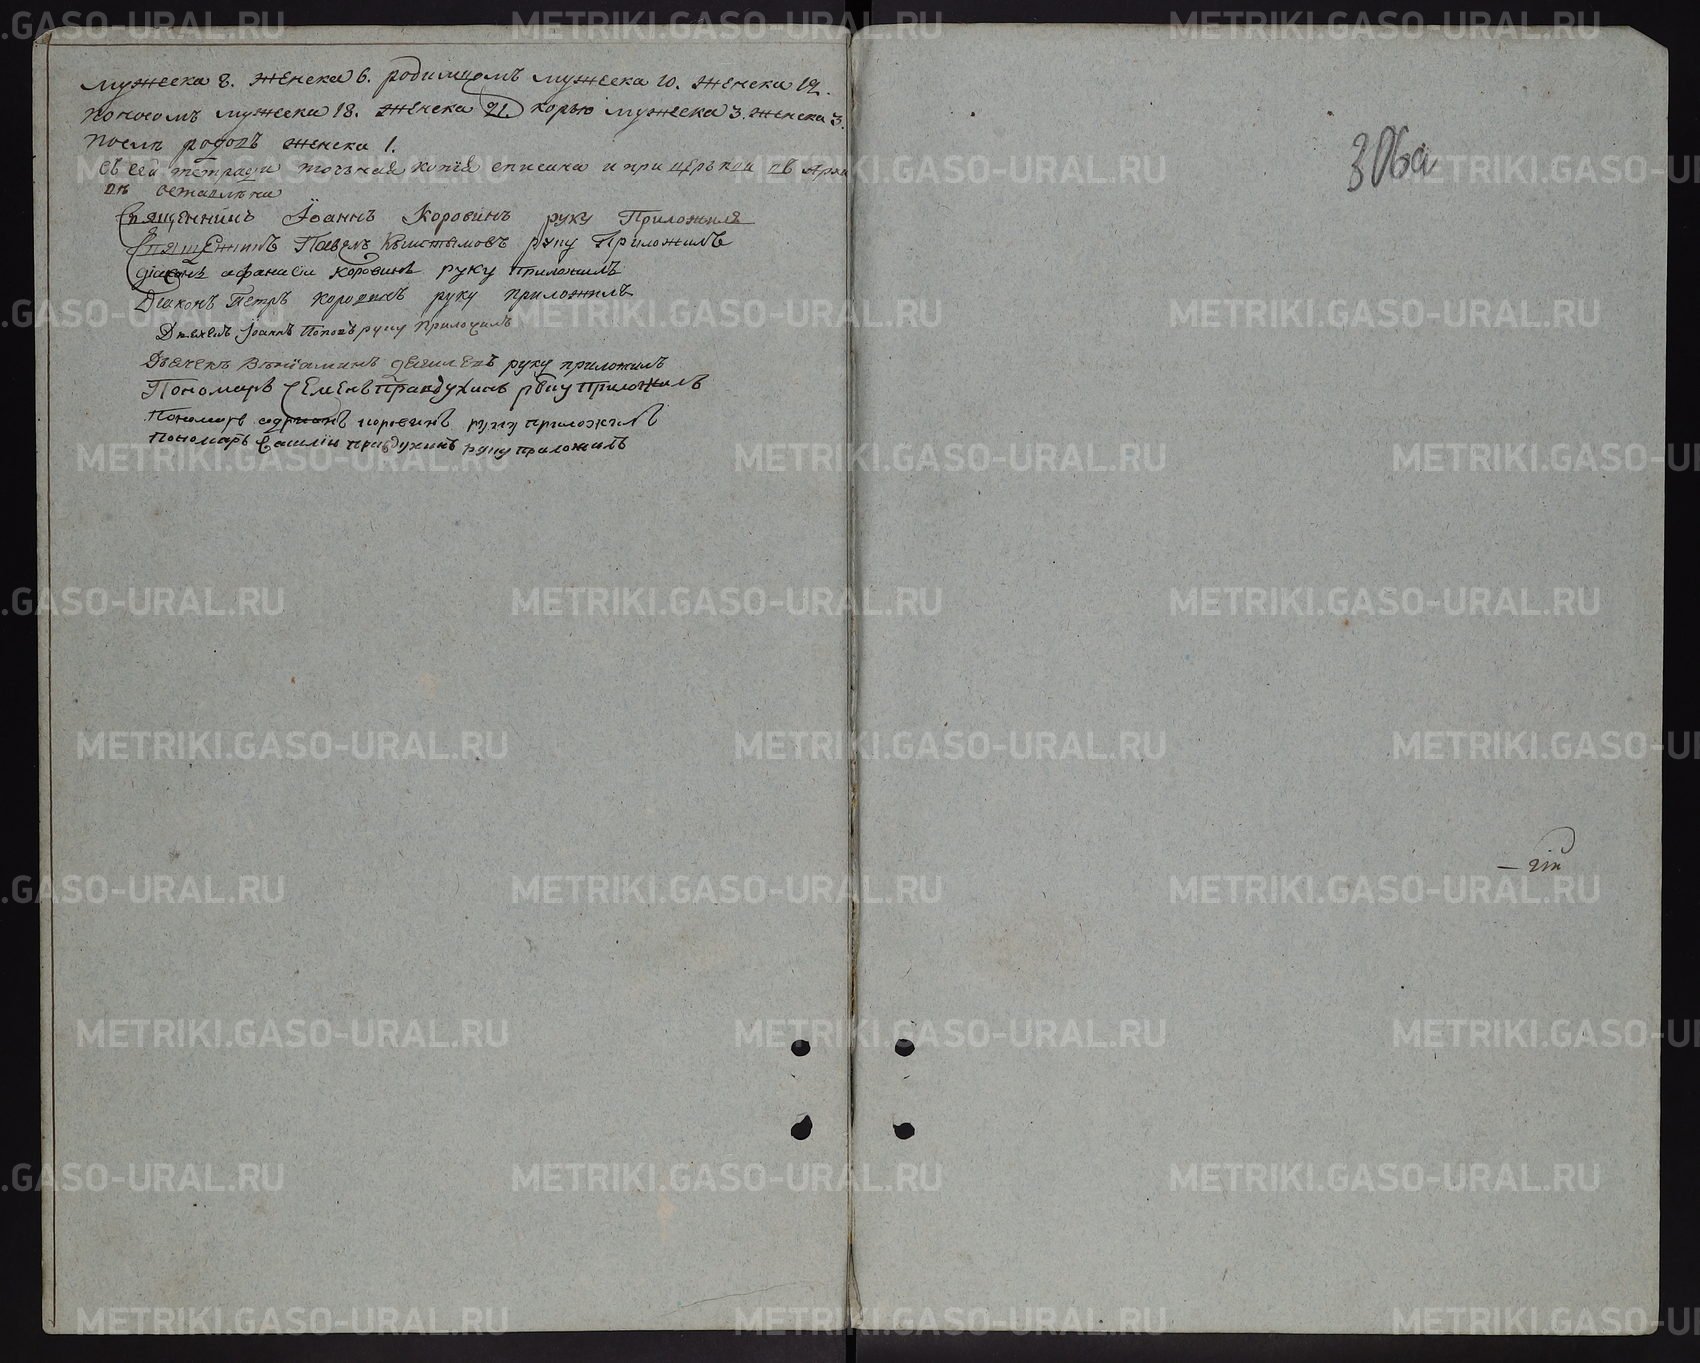 мужеска 8. женска 6. родимцомъ мужеска 10. женска 12.
поносомъ мужеска 18. женска 21. корью мужеска 3. женска 3.
послѣ родовъ женска 1.
Съ сей тетради точная копїя списана и при церькви въ Архи
вѣ оставлена
Священникъ Іоаннъ Коровинъ руку Приложилъ
Священникъ Павелъ Кыштымовъ руку Приложилъ
діаконъ афанасіи коровинъ руку приложилъ
Діаконъ Петръ коровинъ руку приложилъ
Дьячекъ Іоаннъ Поповъ руку приложилъ
Дьячекъ Венїаминъ руку приложилъ
Пономарь Семенъ правдухинъ руку приложилъ
Пономарь адрианъ коровинъ руку приложилъ
Пономарь Василіи правдухинъ руку приложилъ
306а
METRIKI.GASO-URAL.RU